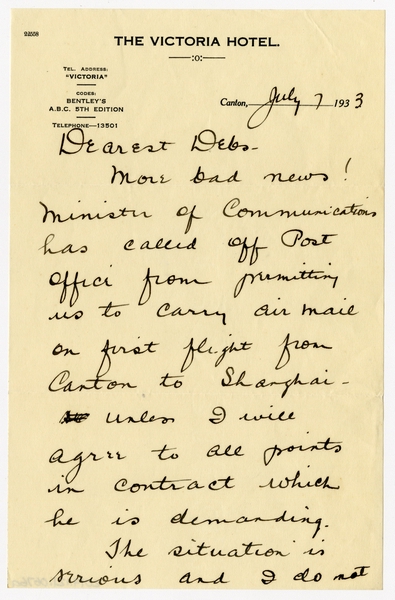 22558
THE VICTORIA HOTEL.
—:o:—
TEL. ADDRESS:
"VICTORIA"
CODES:
BENTLEY'S
A.B.C. 5TH EDITION
TELEPHONE—13501
Canton, July 7 1933
Dearest Debs-
More bad news!
Minister of Communications
has called off Post
Office from permitting
us to carry air mail
on first flight from
Canton to Shanghai -
unless I will
agree to all points
in contract which
he is demanding.
The situation is
serious and I do not